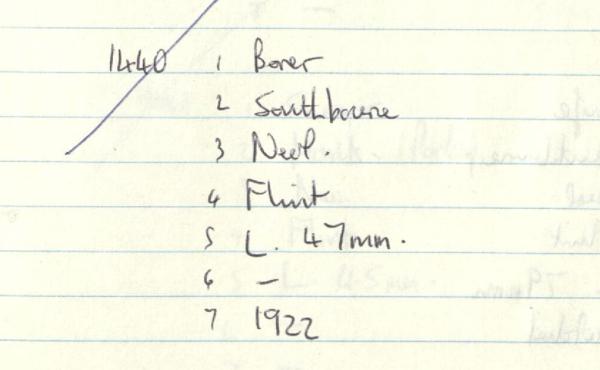 1440 1 Borer
2 Southbourne
3 Neol.
4 Flint
5 L. 47mm.
6 —
7 1922